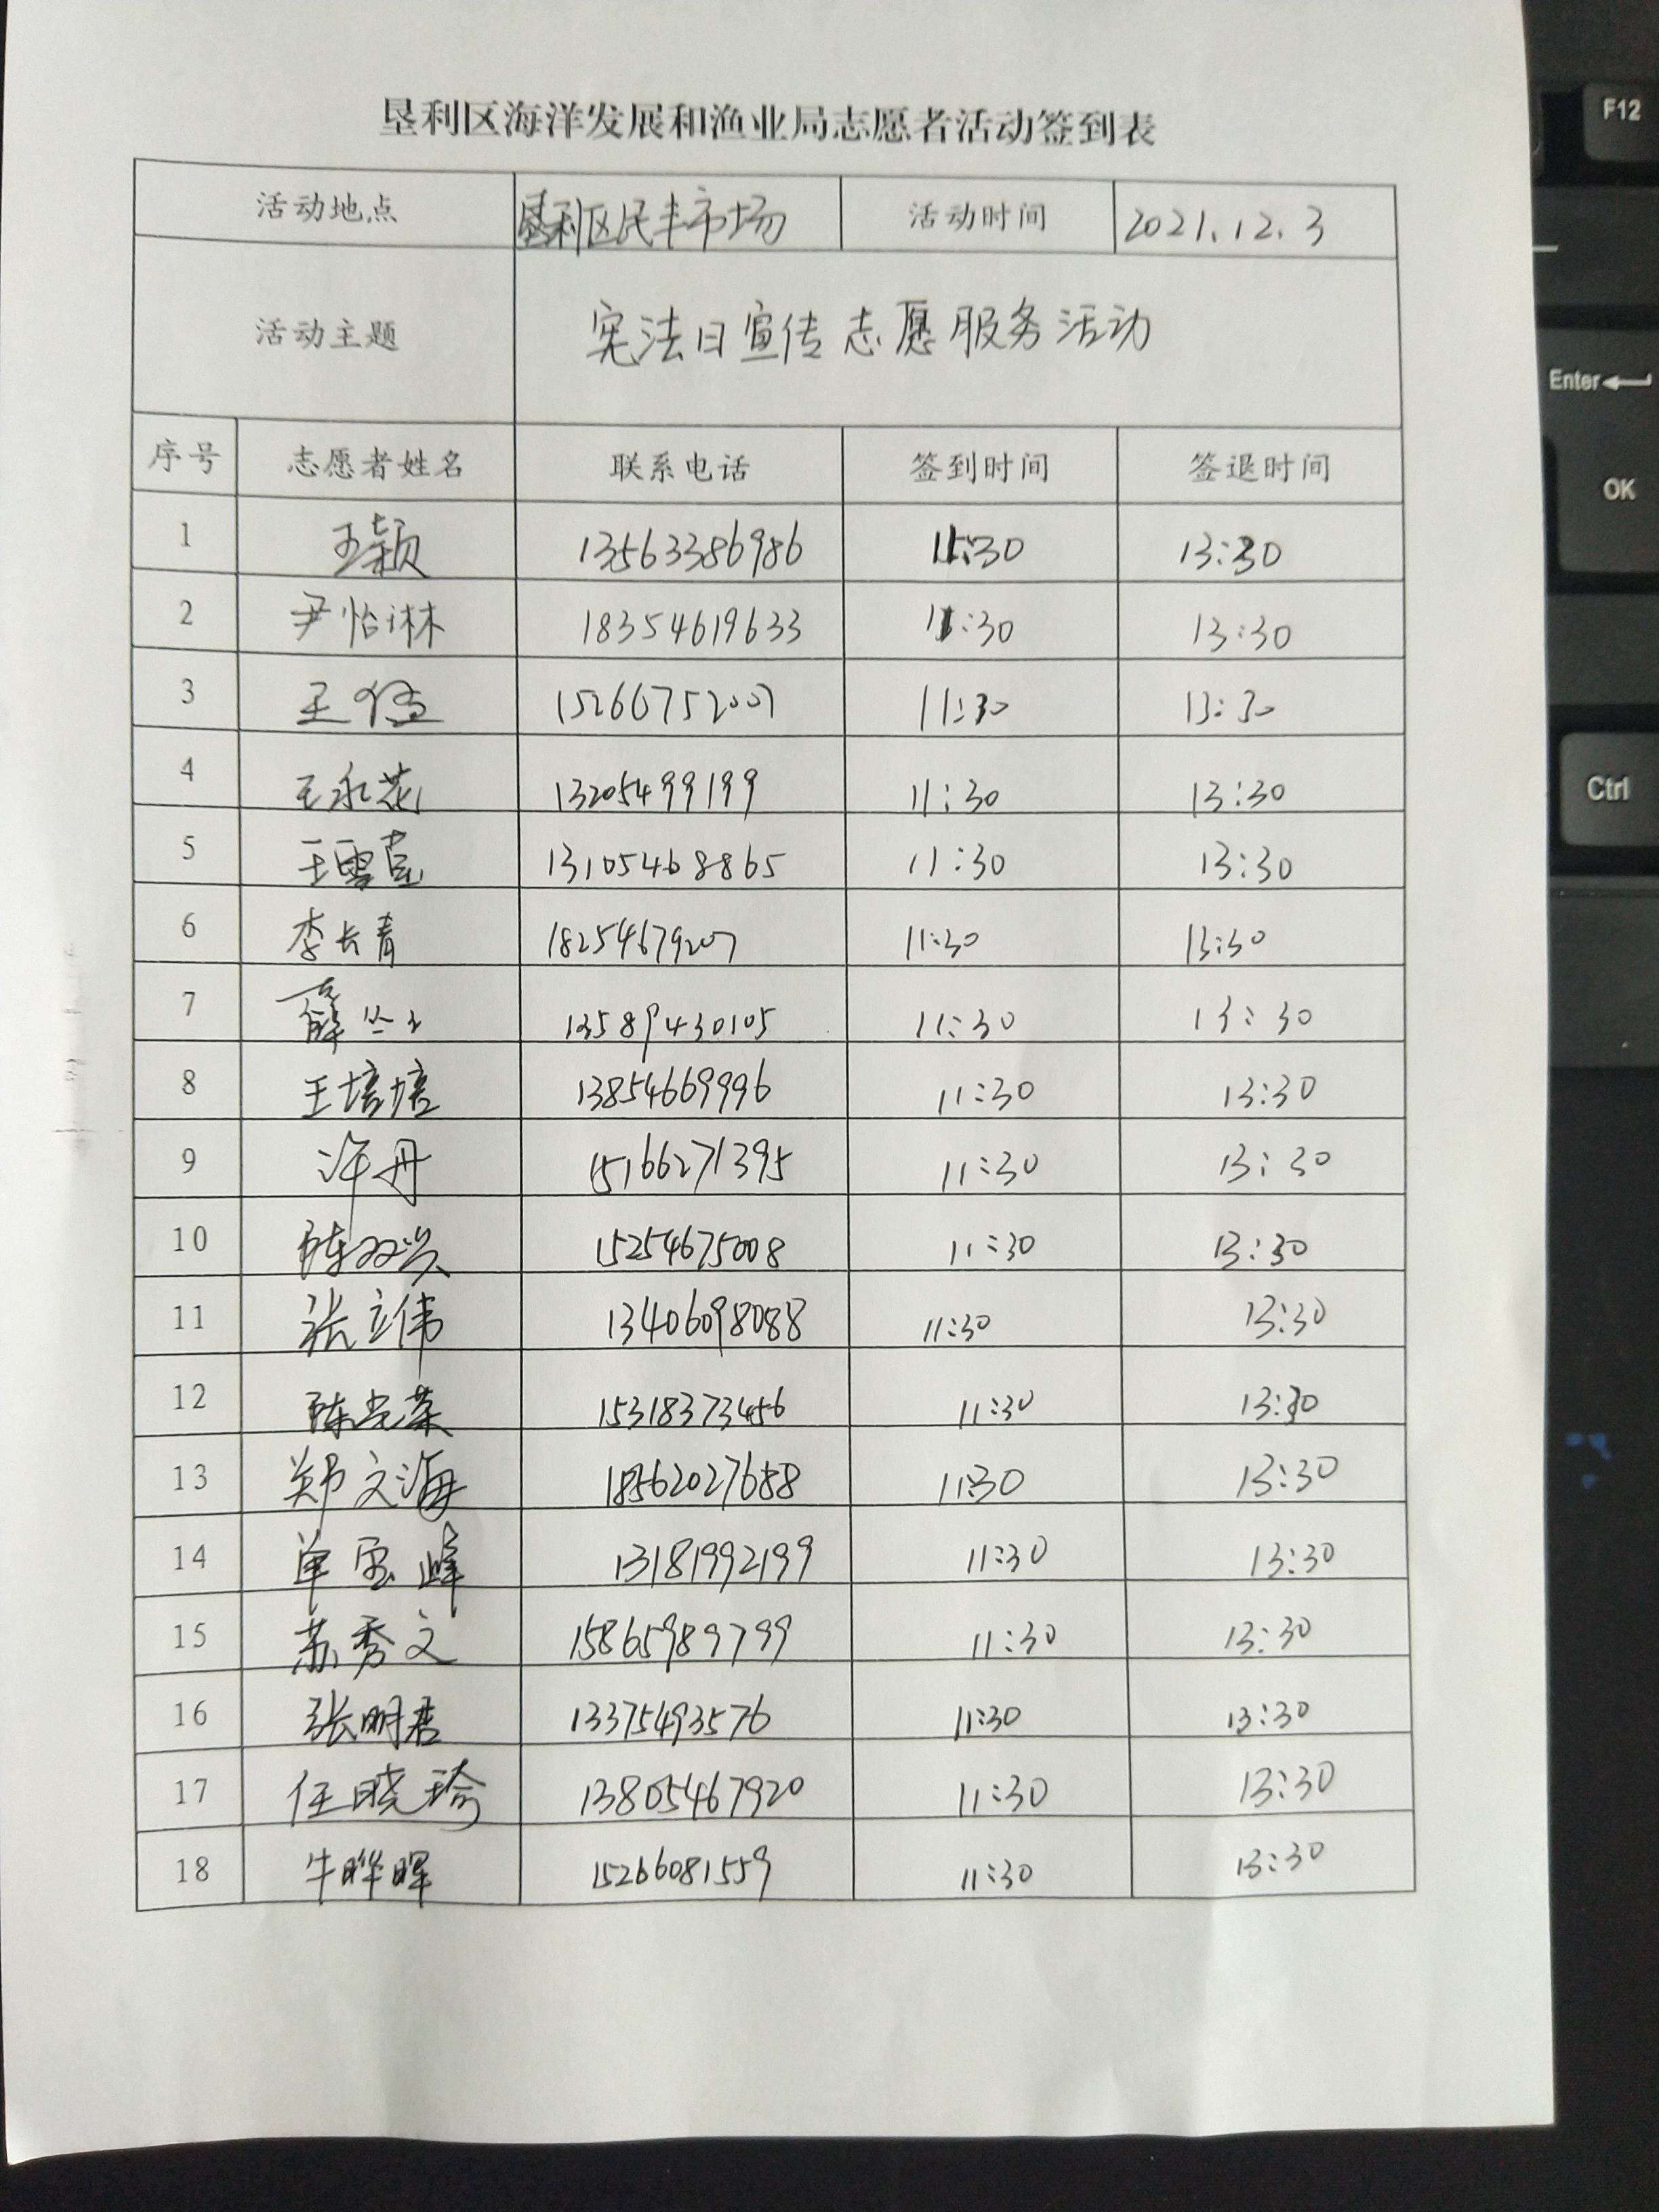 垦利区海洋发展和渔业局志愿者活动签到表
活动地点 垦利区民丰市场 活动时间 2021.12.3
活动主题 宪法日宣传志愿服务活动
序号 志愿者姓名 联系电话 签到时间 签退时间
1 王颖 13563386986 11:30 13:30
2 尹怡琳 18354619633 11:30 13:30
3 王 15266752007 11:30 13:30
4 王永花 13205499199 11:30 13:30
5 王雪莲 13105468865 11:30 13:30
6 李长青 18254679207 11:30 13:30
7 薛 13589430105 11:30 13:30
8 王培培 13854669996 11:30 13:30
9 许丹 15166271395 11:30 13:30
10 陈双兴 15254675008 11:30 13:30
11 张立伟 13406098088 11:30 13:30
12 陈光荣 15318373456 11:30 13:30
13 郑文海 18562027688 11:30 13:30
14 单宝峰 13181992199 11:30 13:30
15 苏秀文 15865989799 11:30 13:30
16 张明君 13375493576 11:30 13:30
17 任晓琦 13805467920 11:30 13:30
18 牛晔晖 15266081559 11:30 13:30
F12
Enter
OK
Ctrl